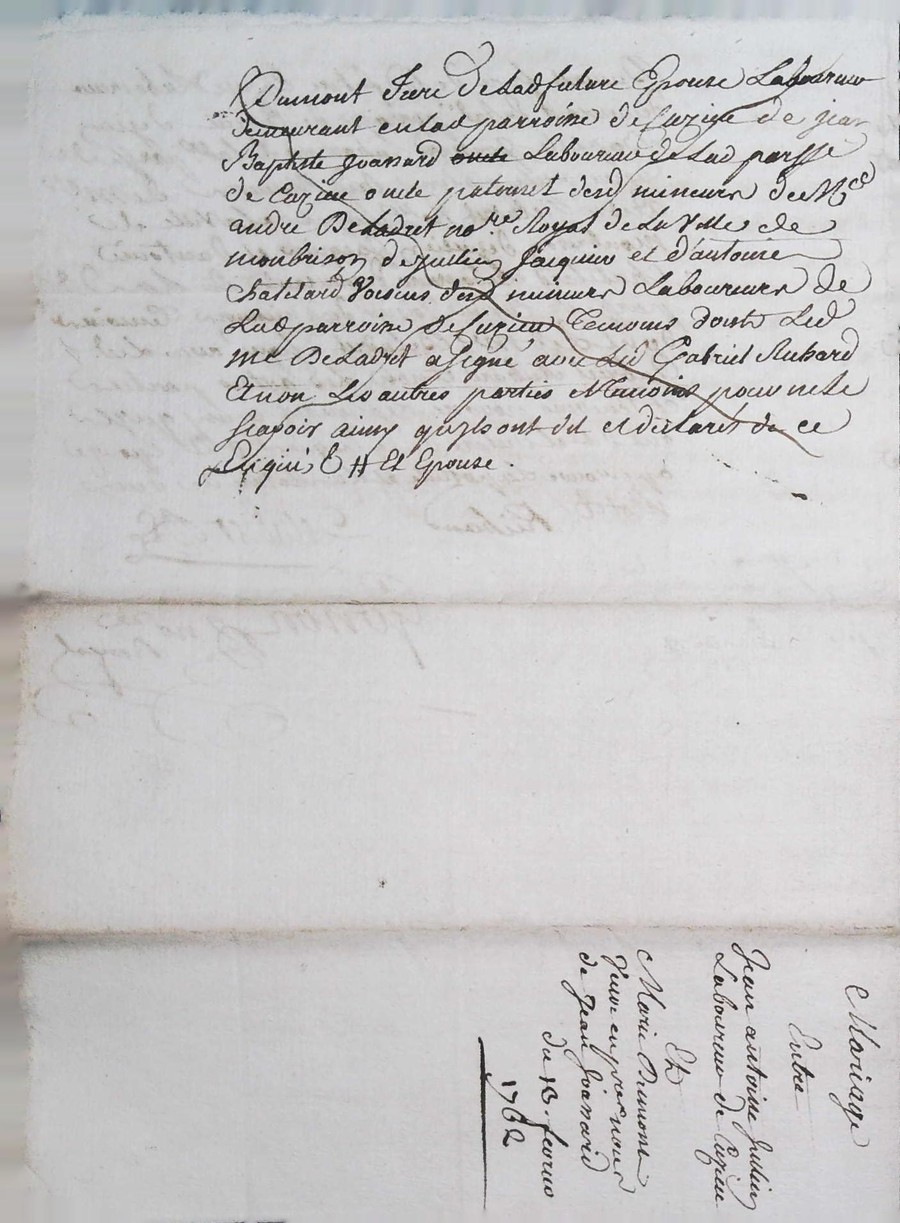 Dumont frere de lad future Epouse Laboureur
demeurant en lad parroisse de Cuzieu de jean
Baptiste Joanard oncle Laboureur de lad parsse
de Cuzieu oncle paternel desd mineurs de Me
andré Deladret nore Royal de la Ville de
monbrison de Jullien Jacquier et d'antoine
Chatelard Voisins desd mineurs Laboureurs de
Lad parroisse de Cuzieu Temoins dont Led
me Deladret a signé avec Led Gabriel Richard
Et non Les autres parties N temoins pour ne le
scavoir ainsy qu'ils ont dit et declaré de ce
Enquis & H Et Epouse .
Mariage
Entre
Jean antoine Jullien
Laboureur de Cuzieu
Et
Marie Dumont
Veuve en pres noces
de Jean Joanard
du 13 fevrier
1762